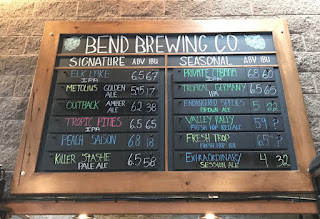 BEND BREWING CO
SIGNATURE ABV IBU
ELK LAKE IPA 6.5 67
METOLIUS GOLDEN ALE 5.5 17
OUTBACK AMBER ALE 6.2 38
TROPIC PINES IPA 6.5 65
PEACH SAISON 6.8 18
KILLER STASHE PALE ALE 6.5 58
SEASONAL ABV IBU
PRIVATE CABANA IPA 6.8 60
TROPICAL GERMANY IPA 65 65
ENDANGERED SPECIES BROWN ALE 5 22
VALLEY RALLY FRESH HOP RED ALE 59 ?
FRESH TROP FRESH HOP IPA 65 ?
EXTRAORDINARY SESSION ALE 4 32